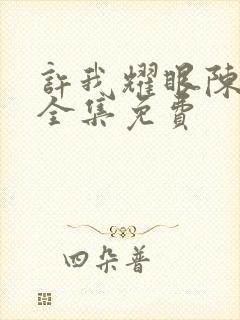 許我耀眼陳
全集免費
四朵普